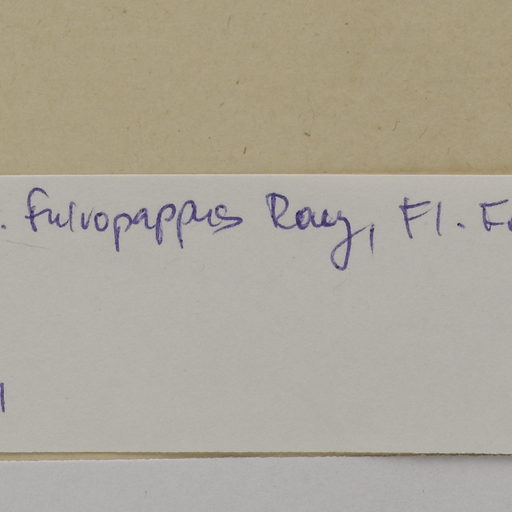 . fulvopappus Rauh, Fl.